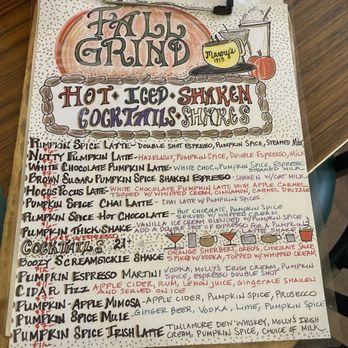 FALL
GRIND
Maxory's
1913
HOT · ICED · SHAKEN
COCKTAILS · SHAKES
PUMPKIN SPICE LATTE - DOUBLE SHOT ESPRESSO, PUMPKIN SPICE, STEAMED MILK
NUTTY PUMPKIN LATTE - HAZELNUT, PUMPKIN SPICE, DOUBLE ESPRESSO, MILK
WHITE CHOCOLATE PUMPKIN LATTE - WHITE CHOC., PUMPKIN SPICE, ESPRESSO
STEAMED MILK
BROWN SUGAR PUMPKIN SPICE SHAKEN ESPRESSO - SHAKEN W/OAT MILK
HOCUS POCUS LATTE - WHITE CHOCOLATE PUMPKIN LATTE WITH APPLE CARAMEL
TOPPED W/ WHIPPED CREAM, CINNAMON, CARAMEL DRIZZLE
PUMPKIN SPICE CHAI LATTE - CHAI LATTE W/ PUMPKIN SPICE.
PUMPKIN SPICE HOT CHOCOLATE - HOT CHOCOLATE, PUMPKIN SPICE
SERVED W/ WHIPPED CREAM
PUMPKIN THICK SHAKE - VANILLA ICE CREAM BLENDED W/ PUMPKIN SPICE
ADD A DOUBLE SHOT OF ESPRESSO FOR A PUMPKIN
COCKTAILS 21+
BOOZY SCREAMSICKLE SHAKE ORANGE SHERBERT, OREOS, CHOCOLATE SAUCE
SPIKED W/ VODKA, TOPPED W/ WHIPPED CREAM
PUMPKIN ESPRESSO MARTINI VODKA, MOLLY'S IRISH CREAM, PUMPKIN
SPICE, ESPRESSO DOUBLE SHOT
CIDAR FIZZ APPLE CIDER, RUM, LEMON JUICE, GINGERALE SHAKEN
AND SERVED ON ICE
PUMPKIN-APPLE MIMOSA - APPLE CIDER, PUMPKIN SPICE, PROSECCO
PUMPKIN SPICE MULE - GINGER BEER, VODKA, LIME, PUMPKIN SPICE
PUMPKIN SPICE IRISH LATTE TULLAMORE DEW WHISKEY, MOLLY'S IRISH
CREAM, PUMPKIN SPICE, CHOICE OF MILK